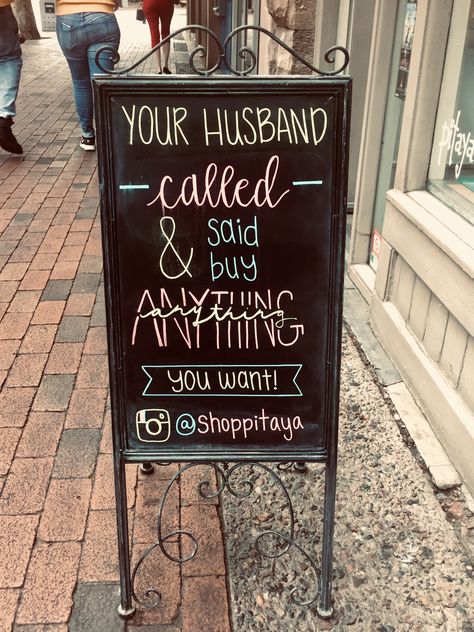 YOUR HUSBAND
called
& said
buy
ANYTHING
anything
you want!
@shoppitaya
pitaya